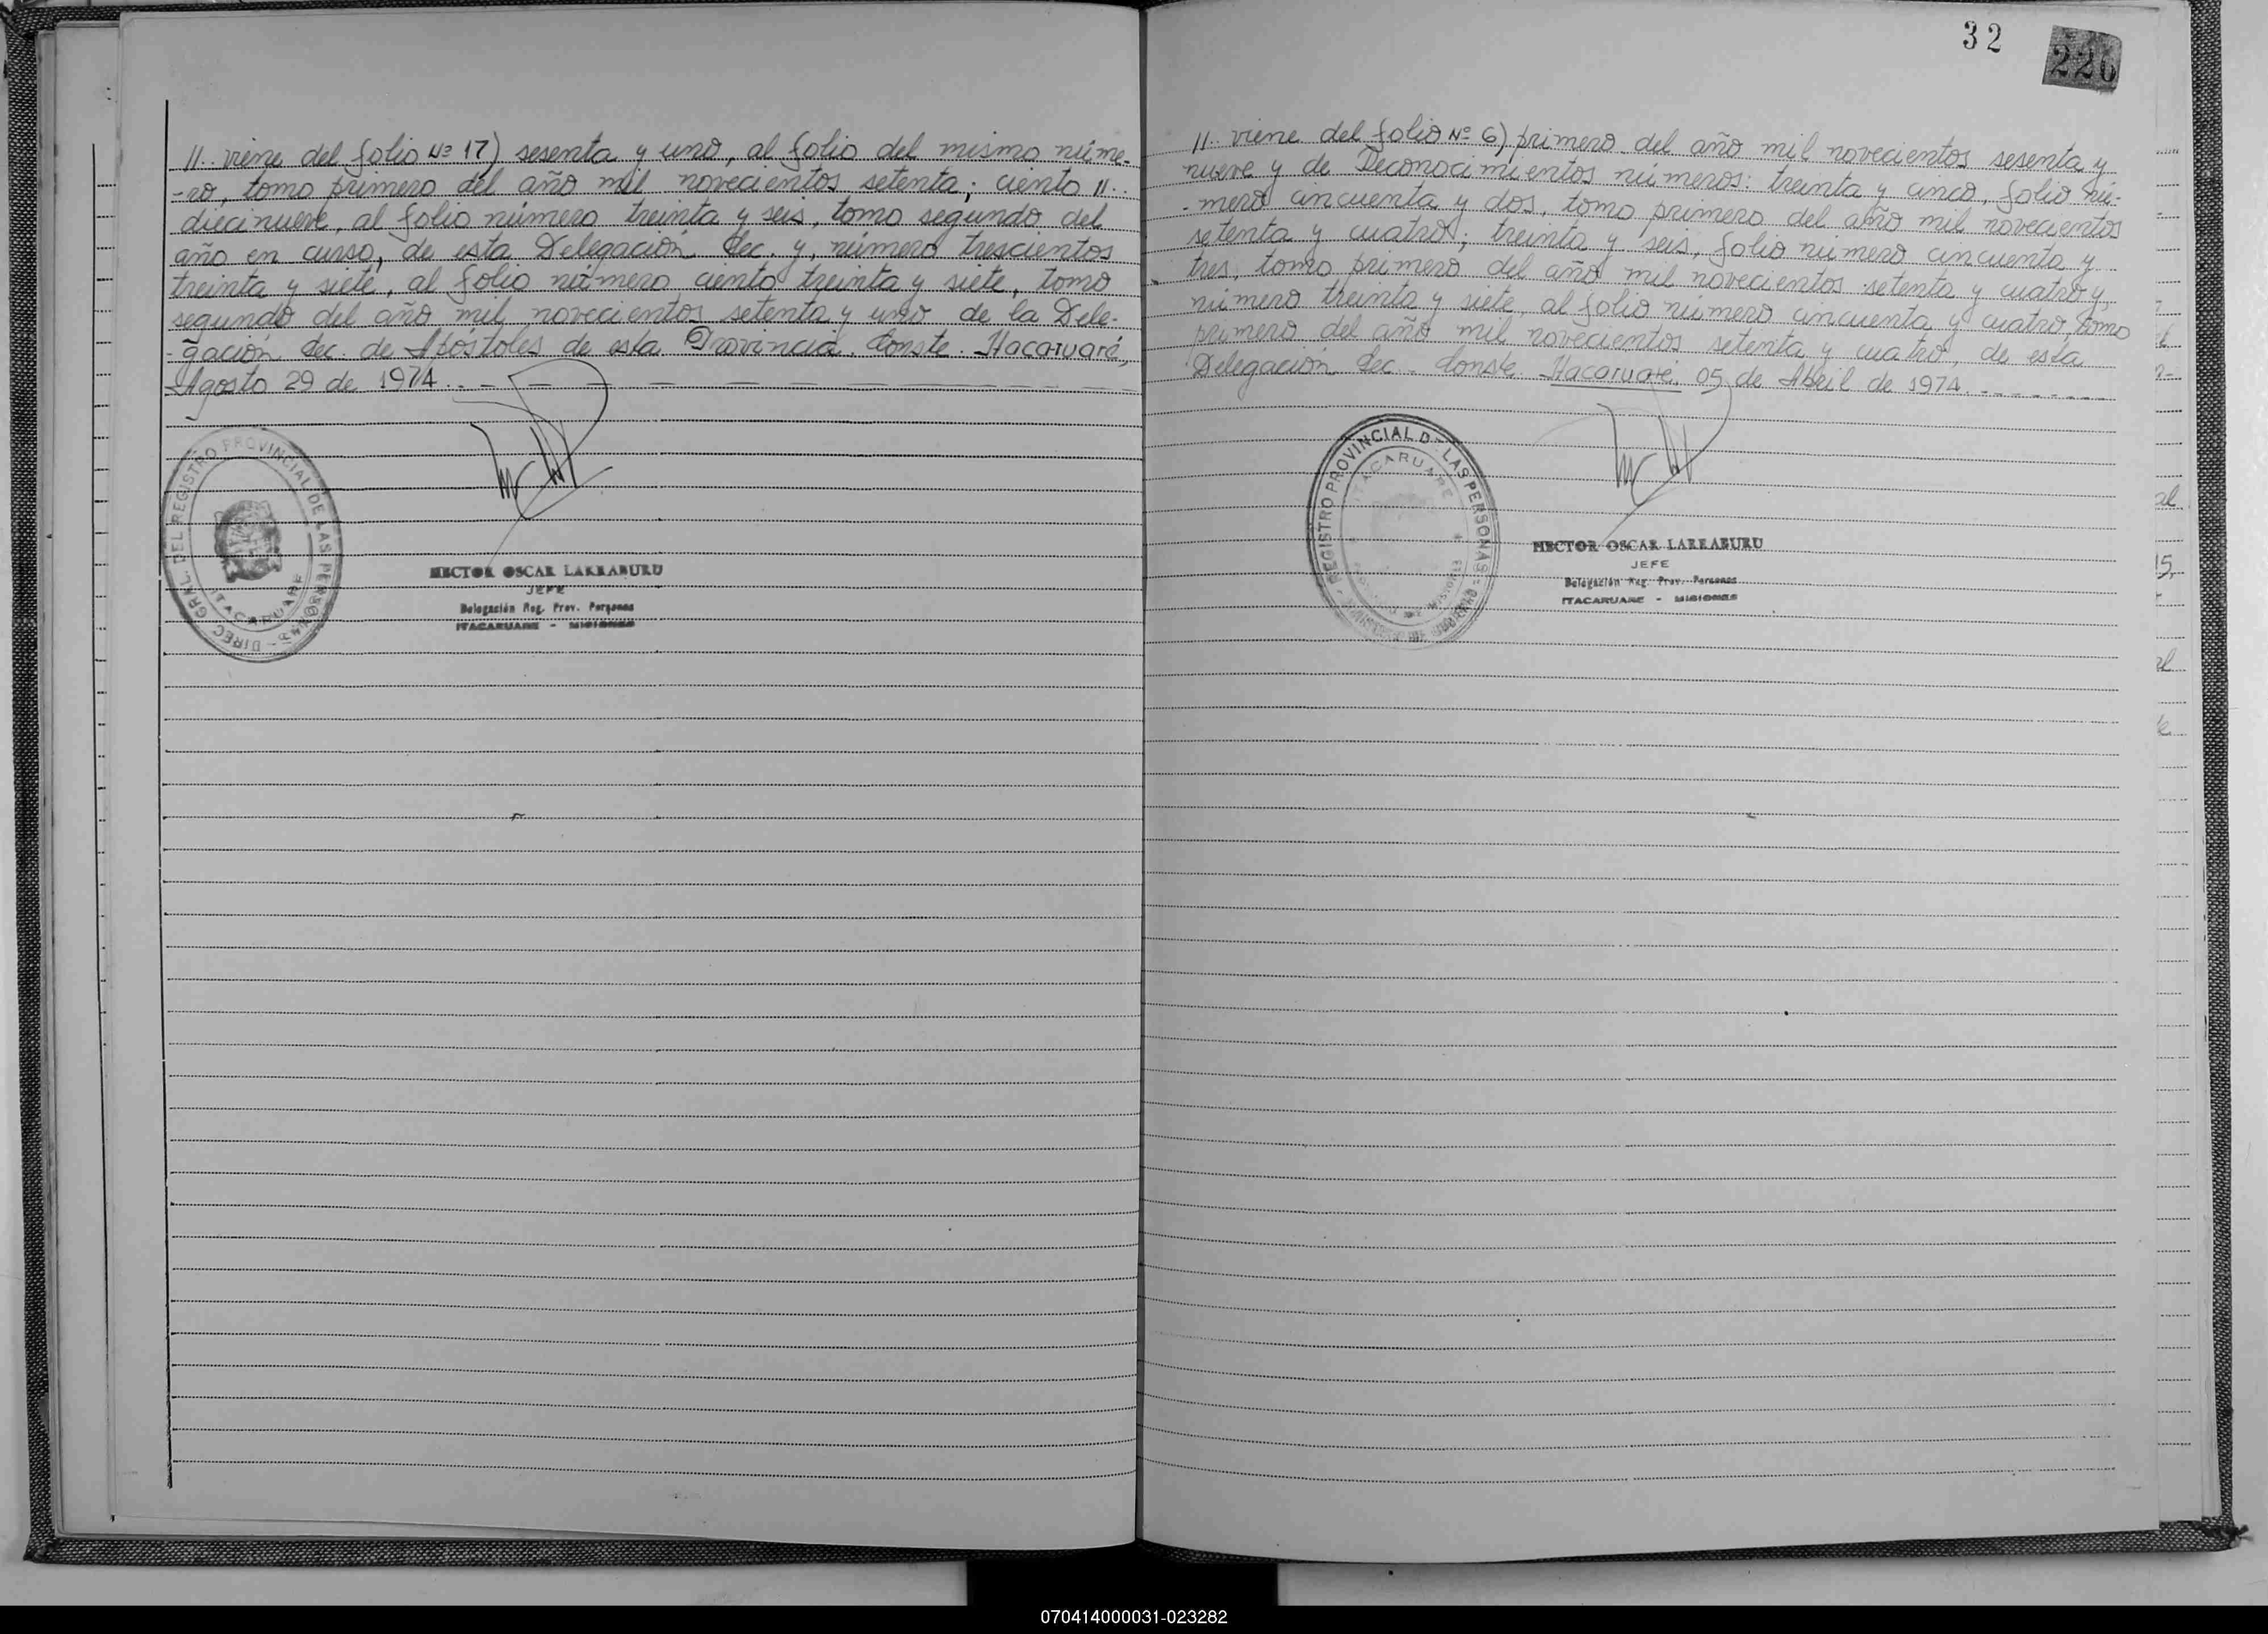 //.. viene del folio Nº 17) sesenta y uno, al folio del mismo núme-
-ro, tomo primero del año mil novecientos setenta; ciento //..
diecinueve, al folio número treinta y seis, tomo segundo del
año en curso, de esta Delegación Sec. y, número trescientos
treinta y siete, al folio número ciento treinta y siete, tomo
segundo del año mil novecientos setenta y uno de la Dele-
-gación Sec. de Apóstoles de esta Provincia. Conste. Itacaruaré,
Agosto 29 de 1974.. _ _ _
DIREC. GRAL. DEL REGISTRO PROVINCIAL DE LAS PERSONAS
ITACARUARE
HECTOR OSCAR LARRABURU
JEFE
Delegación Reg. Prov. Personas
ITACARUARE - MISIONES
32
226
//.. viene del folio Nº 6) primero del año mil novecientos sesenta y
nueve y de Reconocimientos números: treinta y cinco, folio nú-
-mero cincuenta y dos, tomo primero del año mil novecientos
setenta y cuatro; treinta y seis, folio número cincuenta y
tres, tomo primero del año mil novecientos setenta y cuatro y,
número treinta y siete, al folio número cincuenta y cuatro, tomo
primero del año mil novecientos setenta y cuatro, de esta
Delegación Sec.. Conste. Itacaruaré, 05 de Abril de 1974.
REGISTRO PROVINCIAL DE LAS PERSONAS
ITACARUARE
HECTOR OSCAR LARRABURU
JEFE
Delegación Reg. Prov. Personas
ITACARUARE - MISIONES
070414000031-023282